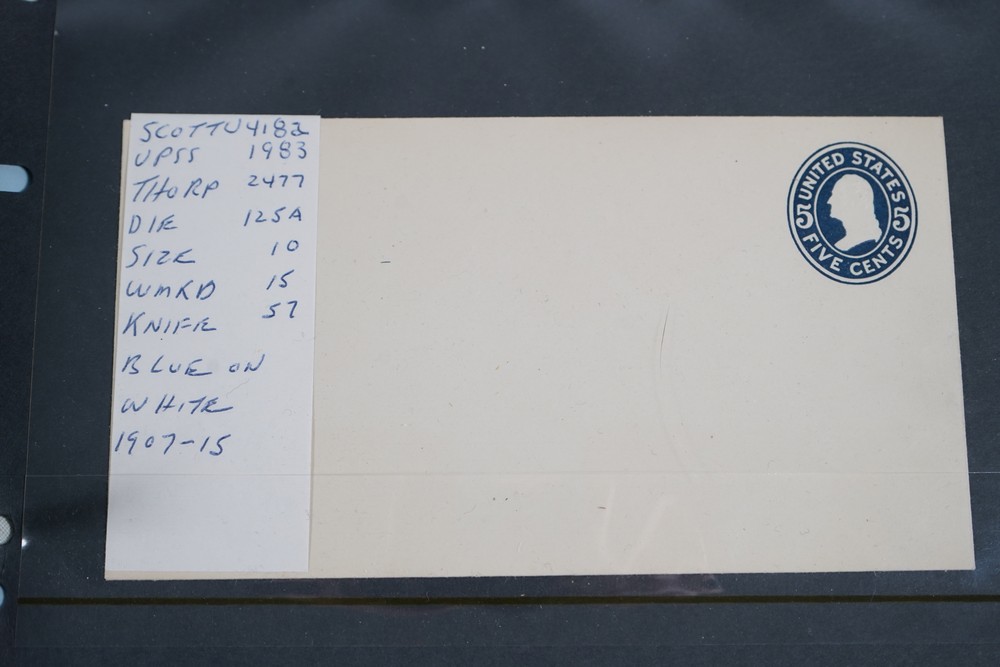 SCOTT U418a
UPSS 1983
THORP 2477
DIE 125A
SIZE 10
WMRD 15
KNIFE 57
BLUE ON
WHITE
1907-15
UNITED STATES
5 5
FIVE CENTS